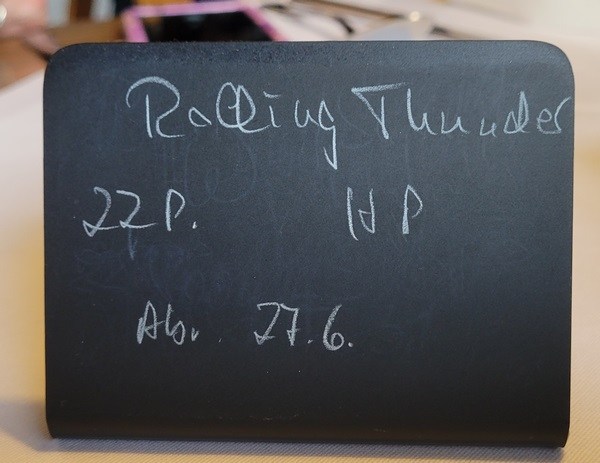 Rolling Thunder
22P. HP
Abr. 27.6.